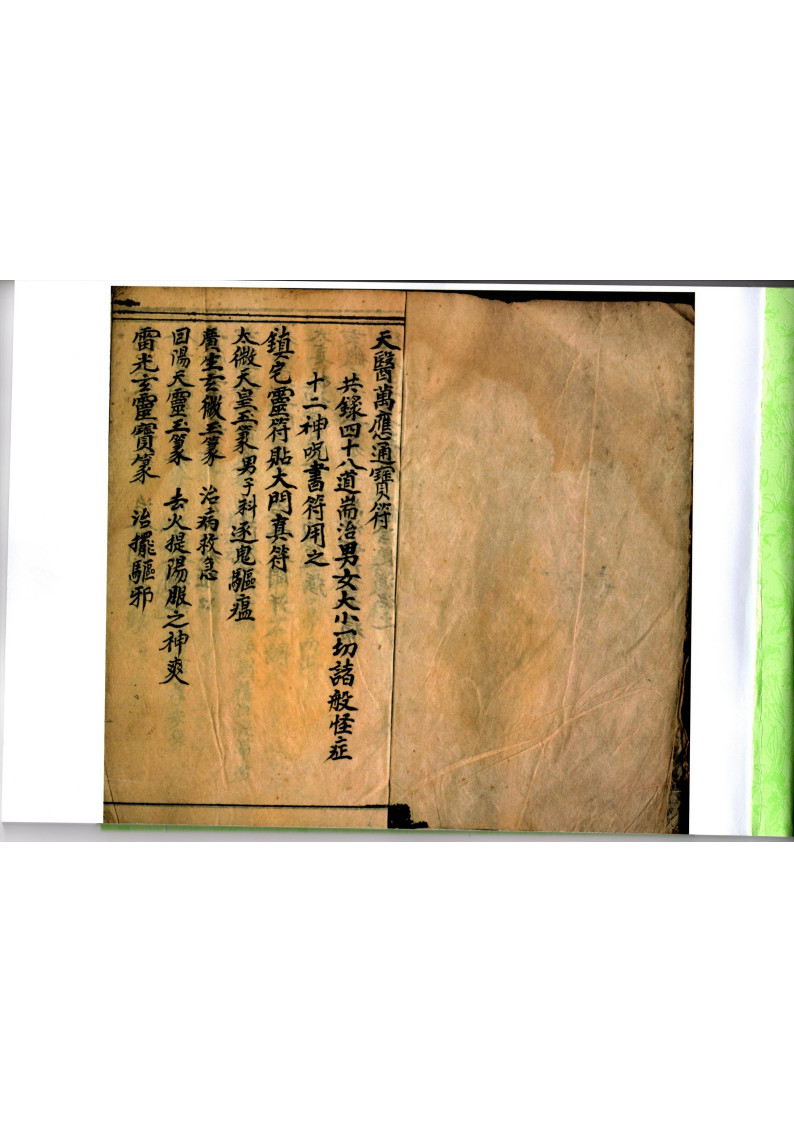 天醫萬應通寶符
共錄四十八道耑治男女大小一切諸般怪症
十二神咒書符用之
鎮宅靈符貼大門真符
太微天皇玉篆男子科逐鬼驅瘟
廣生玄微玉篆 治病救急
回陽天靈玉篆 去火提陽服之神爽
雷光玄靈寶篆 治擺驅邪